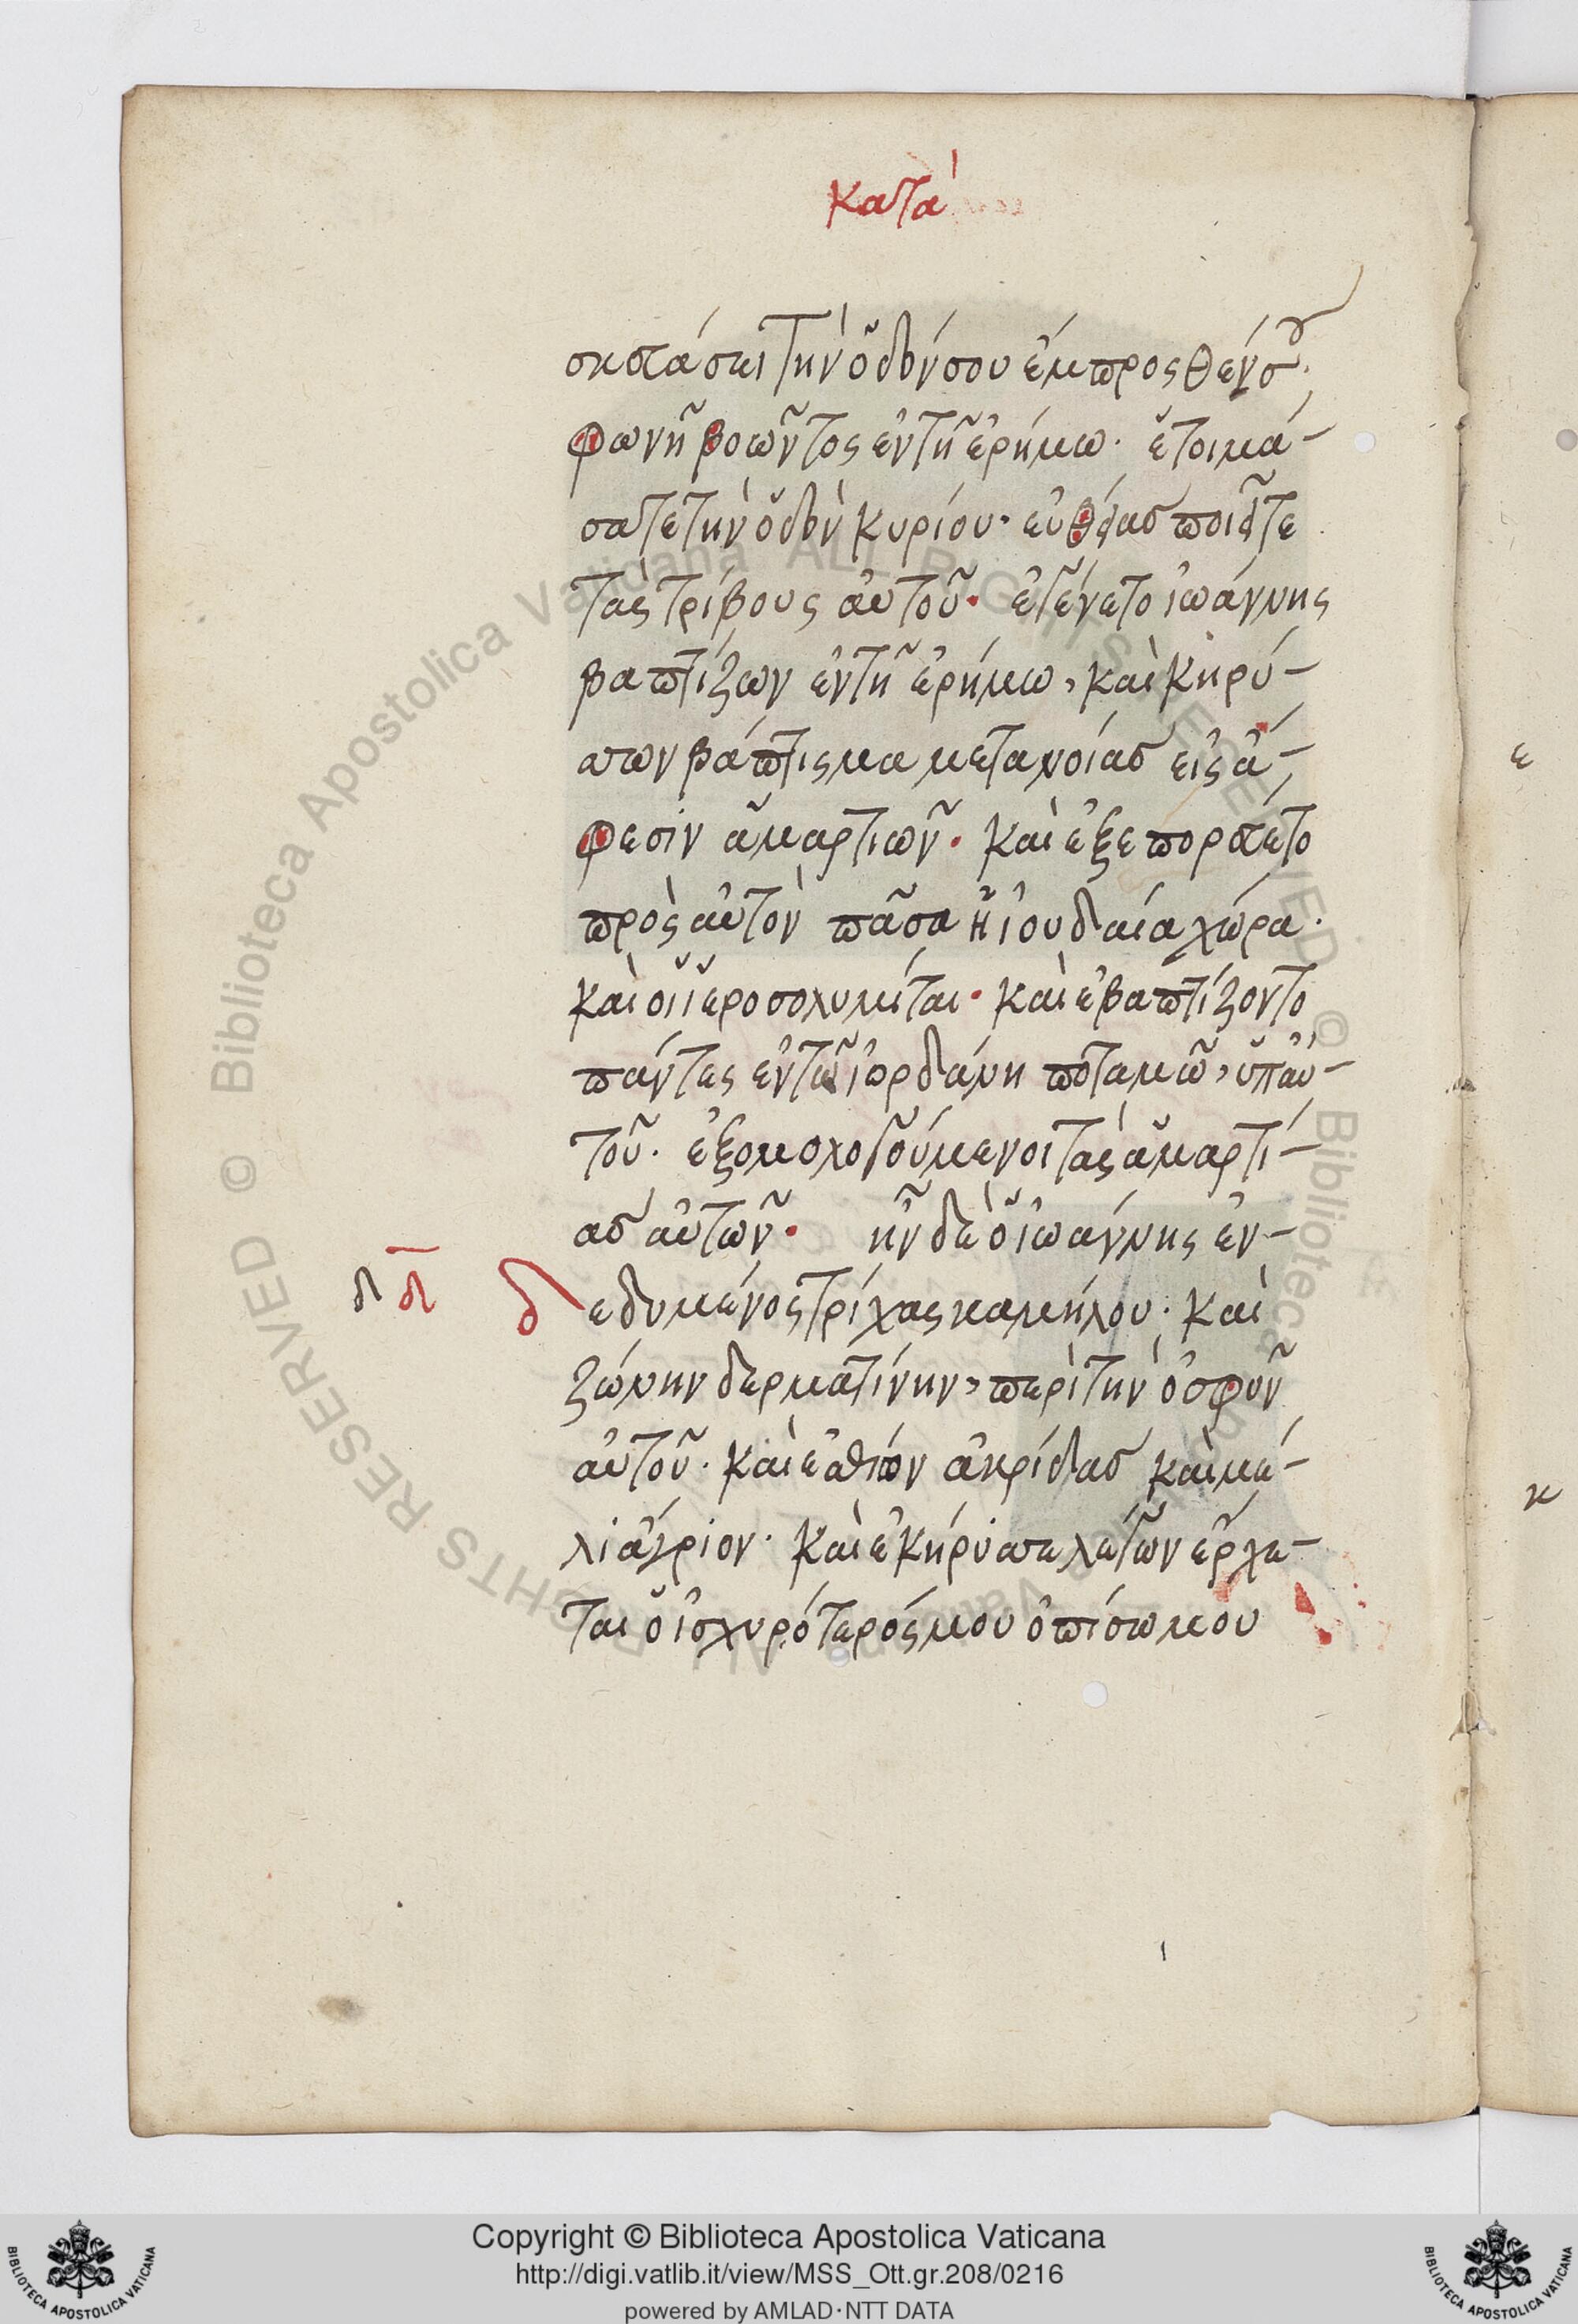 κατὰ
σκευάσει τὴν ὁδόν σου ἔμπροσθέν σου·
φωνῆ βοῶντος ἐν τῆ ἐρήμω· ἑτοιμά-
σατε τὴν ὁδὸν κυρίου· εὐθείας ποιεῖτε
τὰς τρίβους αὐτοῦ· ἐγένετο ἰωάννης
βαπτίζων ἐν τῆ ἐρήμω, καὶ κηρύ-
σσων βάπτισμα μετανοίας εἰς ἄ-
φεσιν ἁμαρτιῶν· καὶ ἐξεπορεύετο
πρὸς αὐτὸν πᾶσα ἡ ἰουδαία χώρα·
καὶ οἱ ἱεροσολυμίται· καὶ ἐβαπτίζοντο
πάντες ἐν τῶ ἰορδάνη ποταμῶ, ὑπ' αὐ-
τοῦ· ἐξομολογούμενοι τὰς ἁμαρτί-
ας αὐτῶν· ἦν δὲ ὁ ἰωάννης ἐν-
δ δ δεδυμένος τρίχας καμήλου· καὶ
ζώνην δερματίνην, περὶ τὴν ὀσφῦν
αὐτοῦ· καὶ ἐσθίων ἀκρίδας καὶ μέ-
λι ἄγριον· καὶ ἐκήρυσσε λέγων ἔρχε-
ται ὁ ἰσχυρότερός μου ὀπίσω μου
ε
κ
Copyright © Biblioteca Apostolica Vaticana
http://digi.vatlib.it/view/MSS_Ott.gr.208/0216
powered by AMLAD·NTT DATA
BIBLIOTECA APOSTOLICA VATICANA
BIBLIOTECA APOSTOLICA VATICANA
© Biblioteca Apostolica Vaticana ALL RIGHTS RESERVED
© Biblioteca Apostolica Vaticana ALL RIGHTS RESERVED